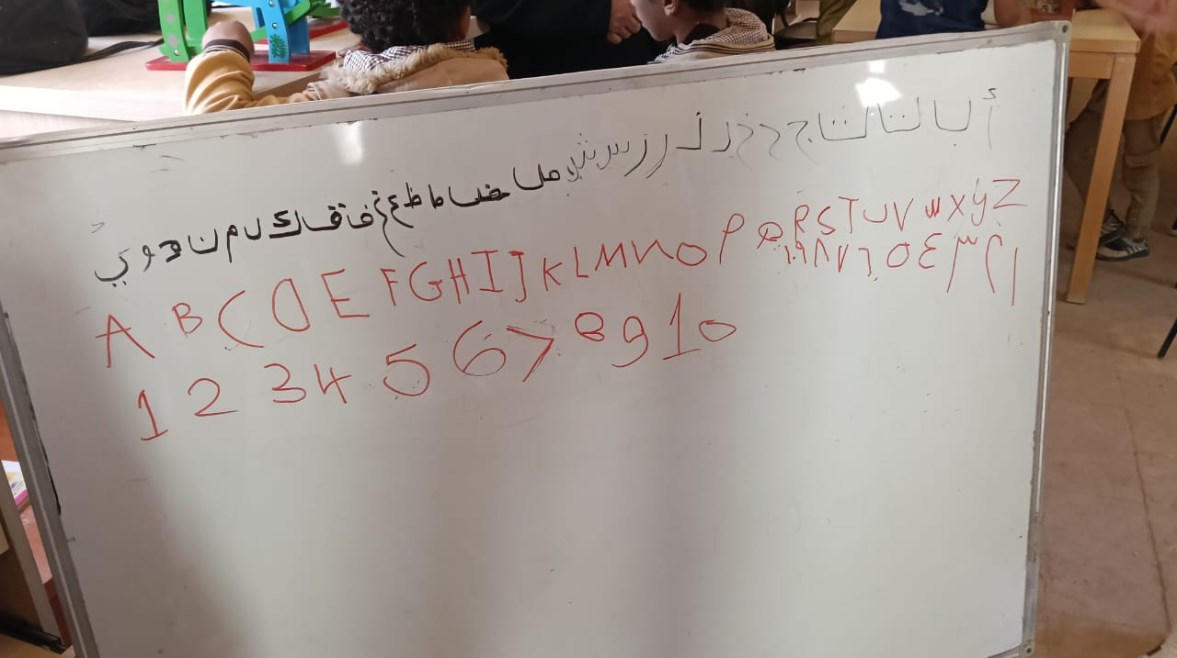 أ ب ت ث ج ح خ د ذ ر ز س ش ص ض ط ظ ع غ ف ق ك ل م ن ه و ي
A B C D E F G H I J K L M N O P Q R S T U V W X Y Z
١ ٢ ٣ ٤ ٥ ٦ ٧ ٨ ٩ ١٠
1 2 3 4 5 6 7 8 9 10